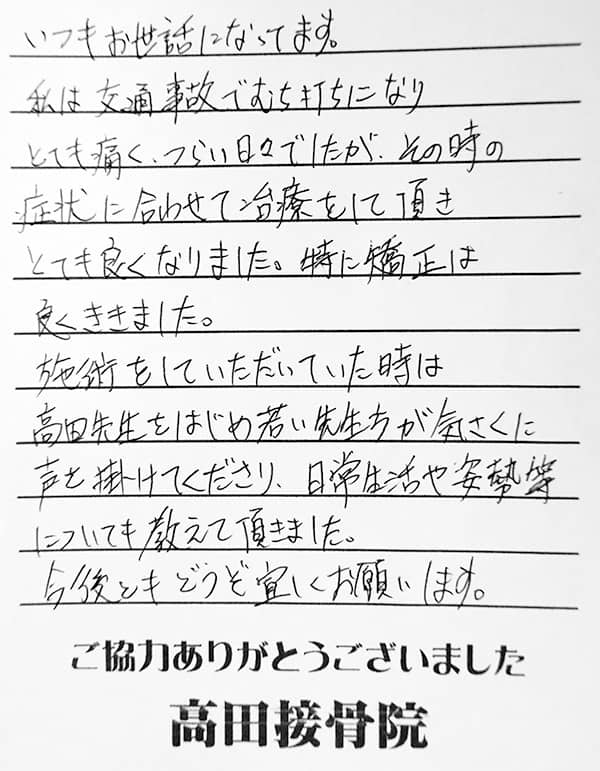 いつもお世話になってます。
私は交通事故でむち打ちになり
とても痛く、つらい日々でしたが、その時の
症状に合わせて治療をして頂き
とても良くなりました。特に矯正は
良くききました。
施術をしていただいていた時は
高田先生をはじめ若い先生方が気さくに
声を掛けてくださり、日常生活や姿勢等
についても教えて頂きました。
今後ともどうぞ宜しくお願いします。
ご協力ありがとうございました
高田接骨院